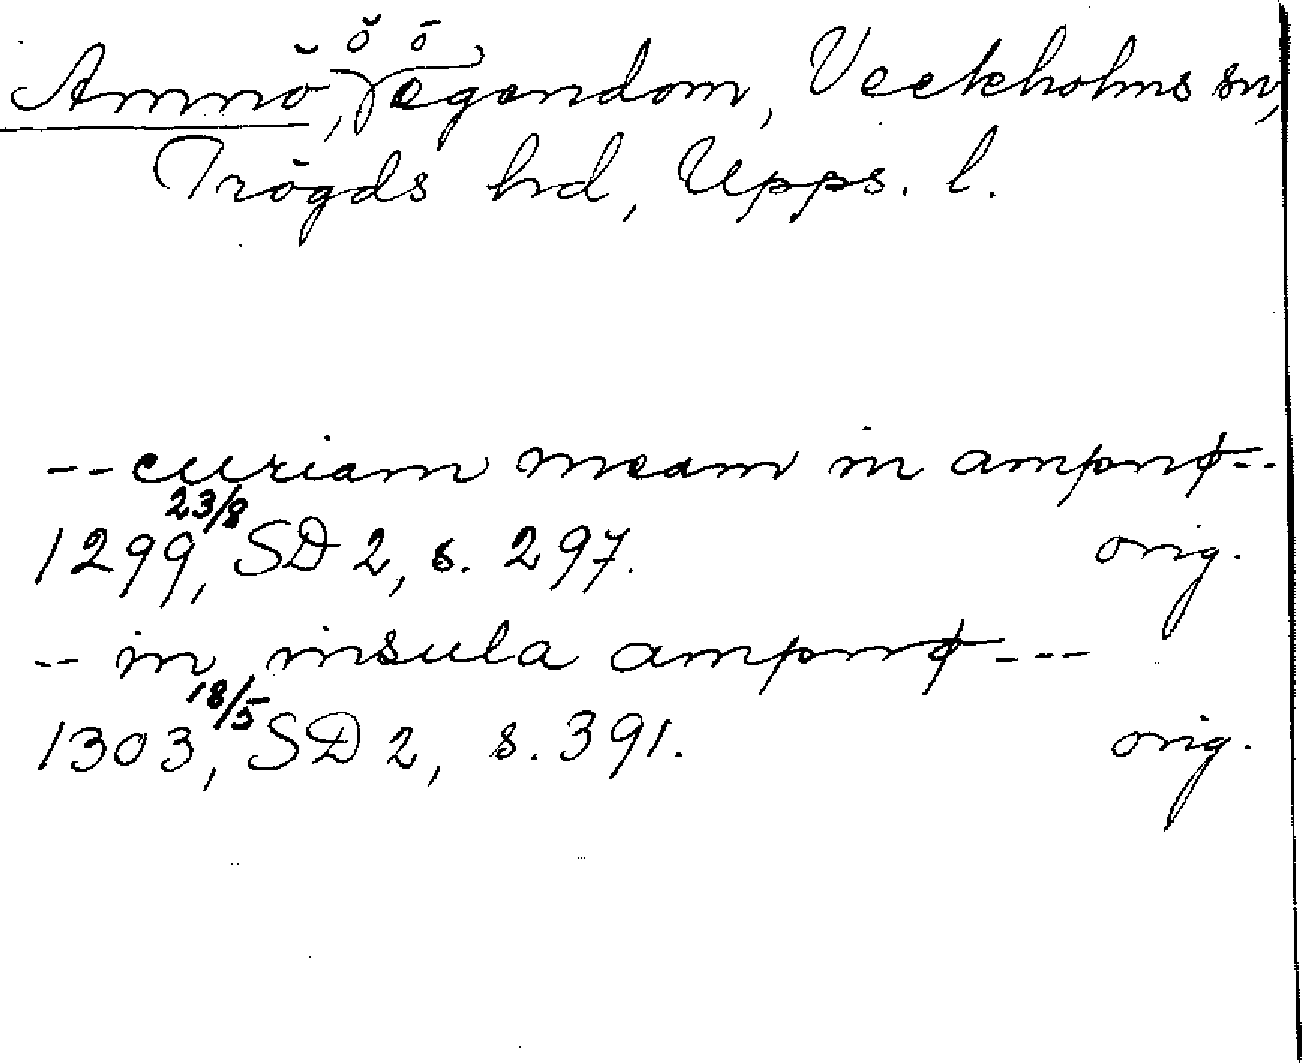 ö ö
Amnö, egendom, Veckholms sn,
Trögds hd, Upps. l.
-- curiam meam in ampnø--
23/8
1299, SD 2, s. 297. orig.
-- in insula ampnø ---
18/5
1303, SD 2, s. 391. orig.